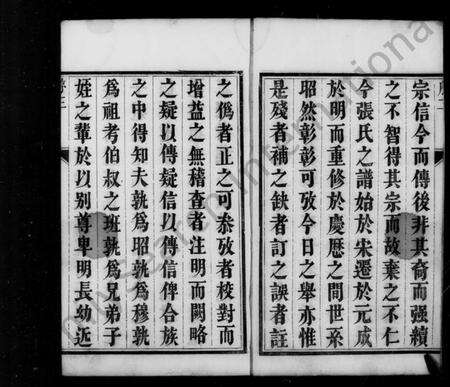 宗信今而傳後非其裔而强續
之不智得其宗而故棄之不仁
今張氏之譜始於宋遷於元咸
於明而重修於慶歷之間世系
昭然彰彰可攷今日之舉亦惟
是殘者補之缺者訂之誤者註
之僞者正之可叅攷者校對而
增益之無稽查者注明而闕略
之疑以傳疑信以傳信俾合族
之中得知夫孰爲昭孰爲穆孰
爲祖考伯叔之班孰爲兄弟子
姪之輩於以别尊卑明長幼近